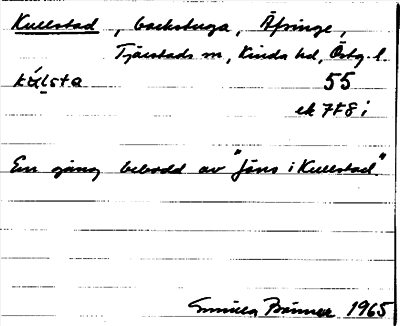 Kullstad, backstuga, Äfvinge,
Tjärstads sn, Kinda hd, Östg. l.
kúl̥sta 55
ek 7F8i
En gång bebodd av "Jöns i Kullstad".
Gunilla 1965